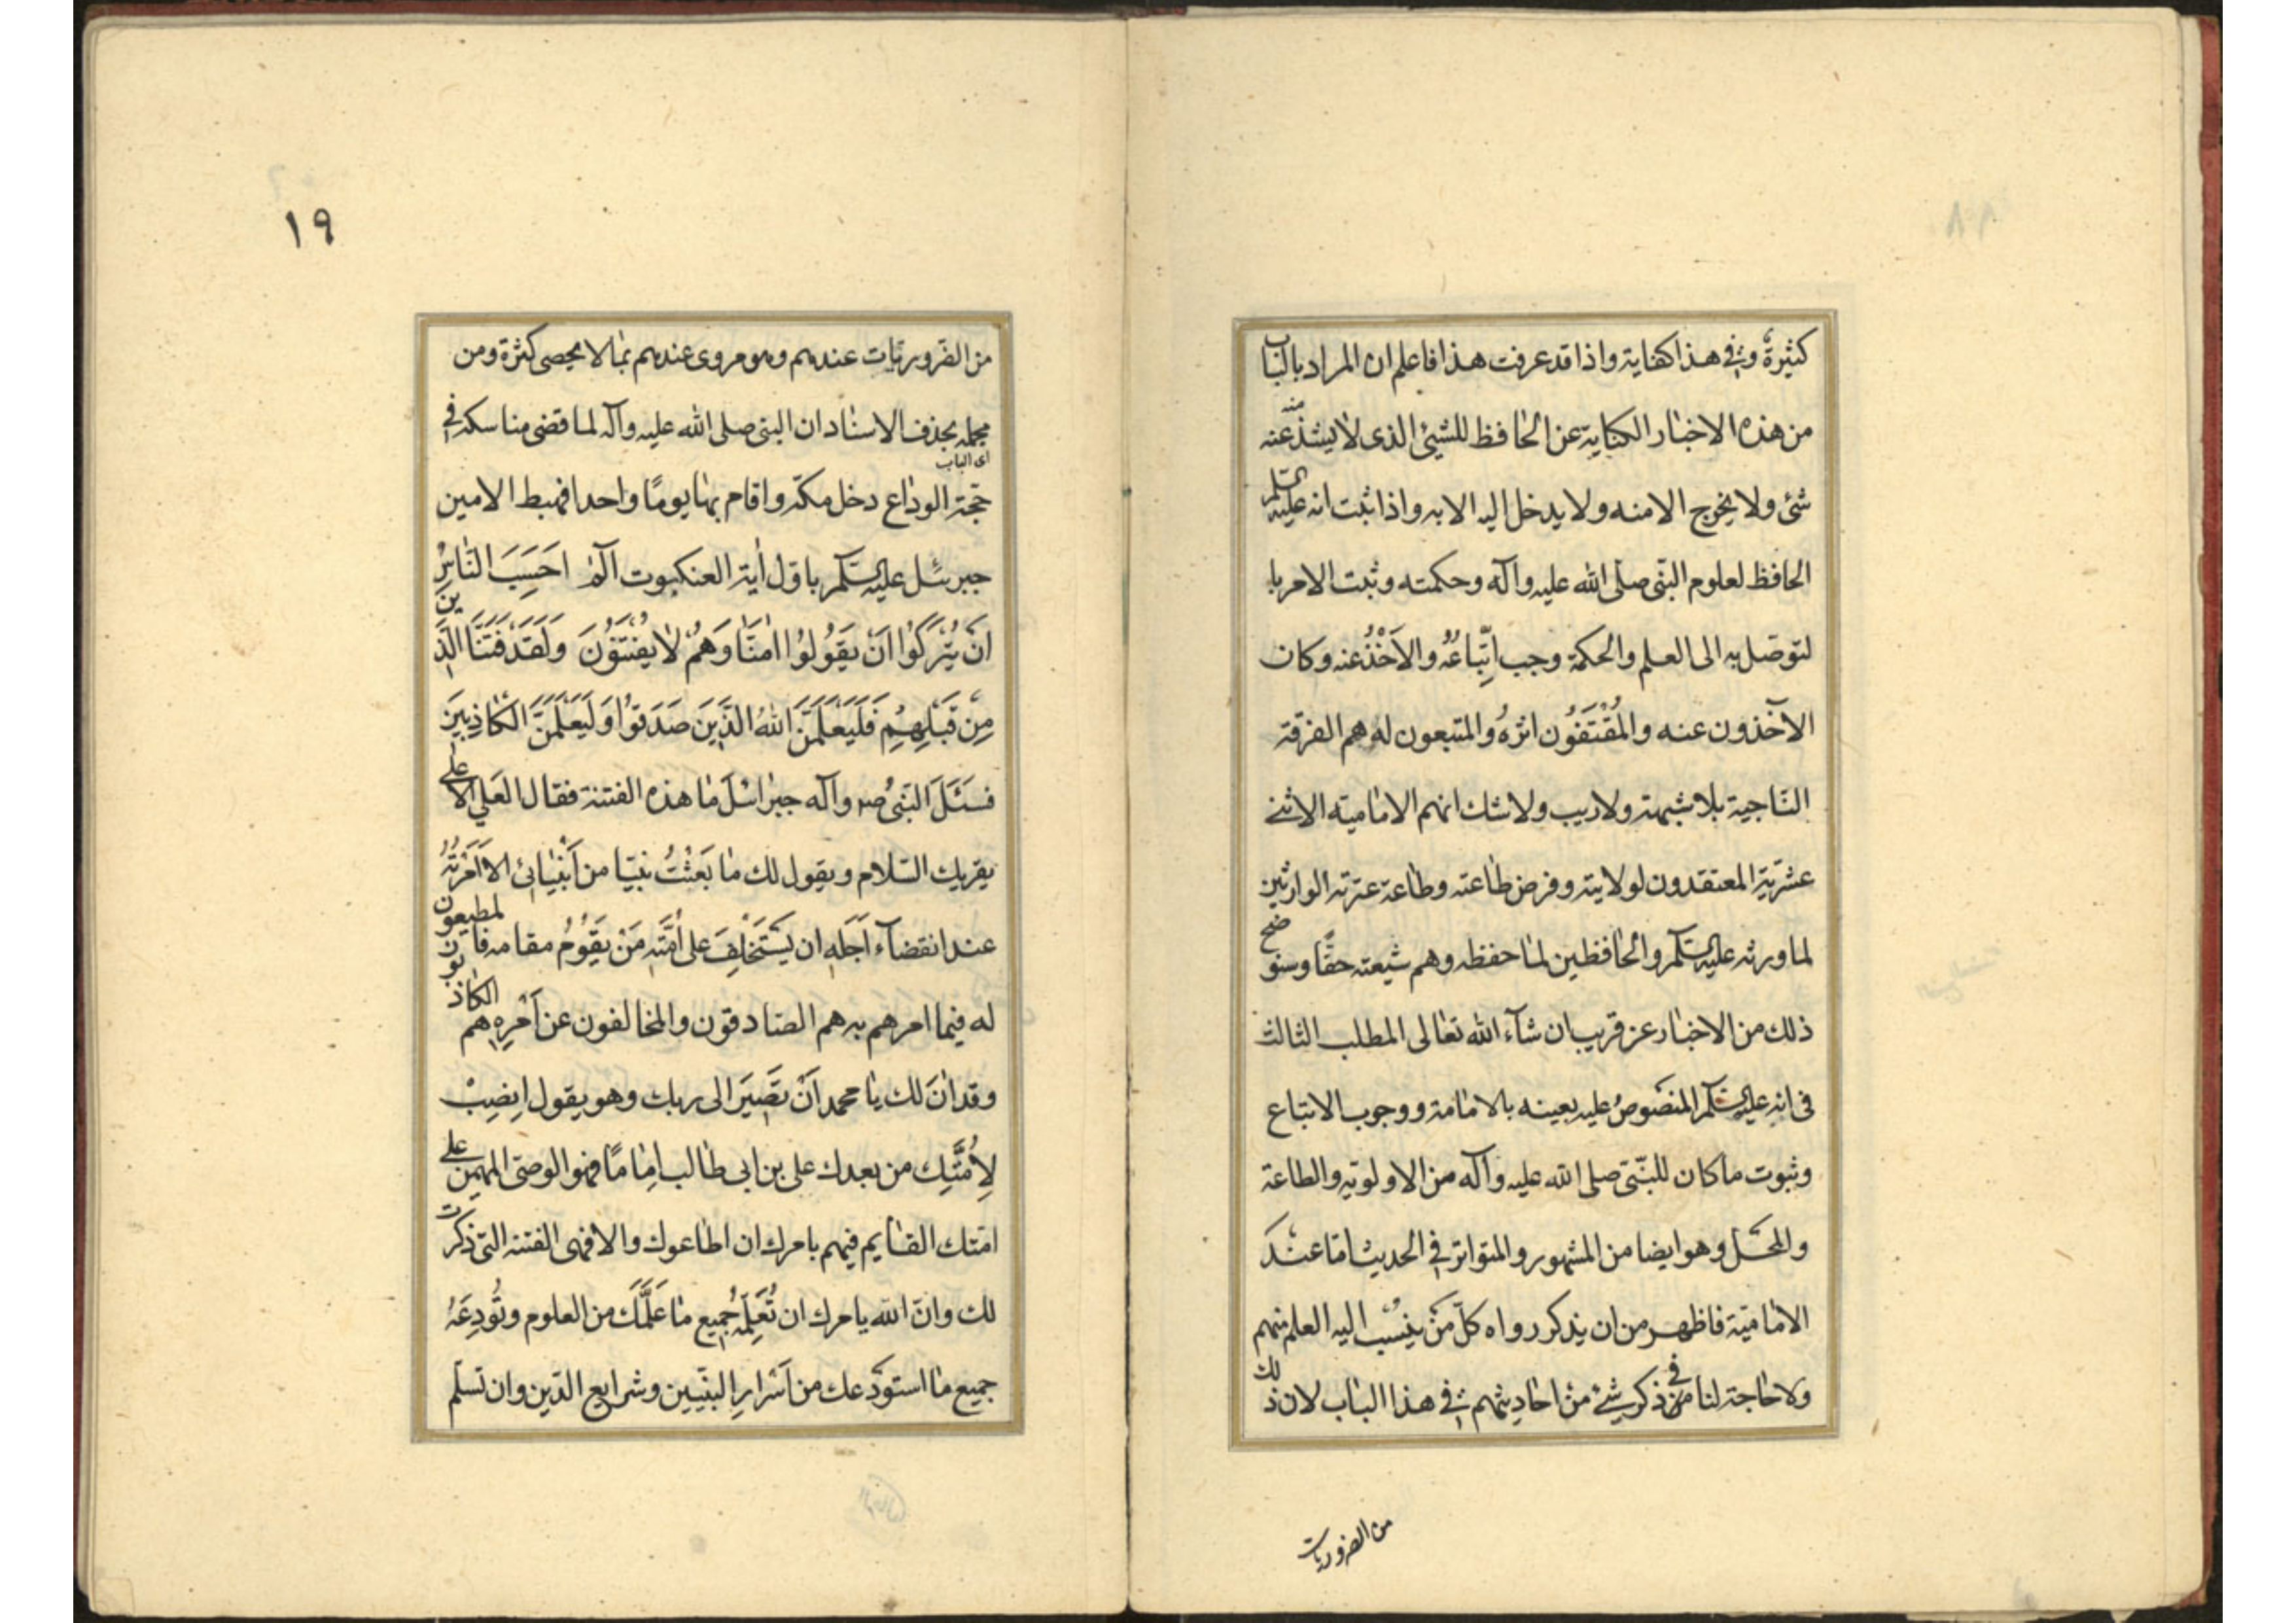 كثيرةٌ وفي هذا كفاية واذا قد عرفت هذا فاعلم ان المراد بالباب
من هذه الاخبار الكناية عن الحافظ للشيئ الذى لا يشذّ عنه شيئ منه
شئ ولا يخرج الا منه ولا يدخل اليه الا به واذا ثبت انه عليه السلم
الحافظ لعلوم النبّى صلى الله عليه وآله وحكمته وثبت الامر با
لتوصّل به الى العلم والحكمة وجب اتّباعُهُ والاَخْذُ عنه وكان
الآخذون عنه والمُقْتَفُون اثرهُ والمتبعون له هم الفرقة
الناجية بلا شبهة ولا ريب ولا شك انهم الامامية الاثنے
عشريّة المعتقدون لولايته وفرض طاعته وطاعة عترته الوارثين
لما ورثه عليه السّلم والحافظين لما حفظه وهم شيعته حقًّا وسنوضح
ذلك من الاخبار عن قريب ان شآء الله تعالى المطلب الثالث
فى انه عليه السّلم المنصوصُ عليه بعينه بالامامة ووجوب الاتباع
وثبوت ما كان للنبّى صلى الله عليه وآله من الاولويّة والطاعة
والمحَلّ وهو ايضا من المشهور والمتواتر في الحديث امّا عندَ
الاماميّة فاظهر من ان يذكر رواه كلّ مَنْ يُنْسَب اليه العلم منهم
ولا حاجة لنا فى ذكر شئ من احاديثهم فى هذا الباب لان ذلك
من الضروريات
١٩
من الضّروريّات عندهم وهو مروى عندهم بما لا يحصى كثرة ومن
مجمله بحذف الاسناد ان النبى صلى الله عليه وآله لما قضى مناسكه في
اى الباب
حجّة الوداع دخل مكّة واقام بها يومًا واحدا فهبط الامين
جبرئيل عليه السّلم باوّل اٰية العنكبوت آلٓمٓ اَحَسِبَ النّاسُ
اَنْ يُتْرَكُوْا اَنْ يَقُولُوْا اٰمَنَّا وَهُمْ لا يُفْتَنُوْنَ وَلَقَدْ فَتَنَّا الَّذين
مِنْ قَبْلِهِمْ فَلَيَعْلَمَنَّ اللهُ الذَّيِنَ صَدَقوُا وَلَيَعْلَمَنَّ الْكاذِبيَنَ
فسَئَلَ النَبّىُ صم وآله جبرائيل ما هذه الفتنة فقال العَلي الاعلى
يقريك السّلام ويقول لك ما بَعَثْتُ نبيّا من اَنْبِيٰائى الاّ اَمَرْتُهُ
عند انقضآء اَجَلهِ ان يَسْتَخْلِفَ على اُمَّتهِ مَنْ يَقُومُ مقامه فالمطيعون
له فيما امرهم به هم الصّادقون والمخالفون عن اَمْرِهِ هم الكاذبون
وقد اٰنَ لك يا محمد اَنْ تَصيَر الى ربك وهو يقول اِنصِبْ
لِاُمَّتِك من بعدك على بن ابى طالب اِمامًا فهو الوصّى المهيمن على
امّتك القائيم فيهم بامرك ان اطاعوك والا فهى الفتنة التى ذكرت
لك وانّ الله يامرك ان تُعَلِّمهُ جميع ما عَلَّمَكَ من العلوم وتُودِعَهُ
جميع ما استودَعك من اَسْرارِ النبيّين وشرايع الدّين وان تسلّم